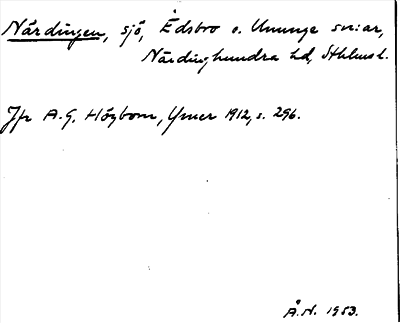 Närdingen, sjö, Edsbro o. Ununge sn:ar,
Närdinghundra hd, Sthlms l.
Jfr A.G. Högbom, Ymer 1912, s. 296.
Å.N. 1953.